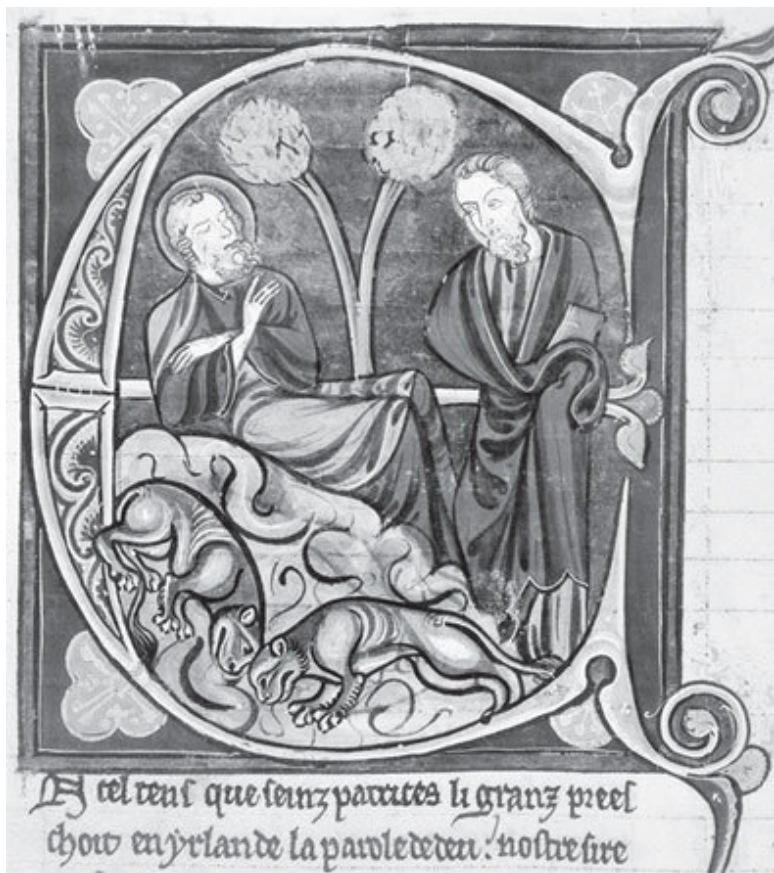 EN cel tens que seinz patrices li granz prees
choit en yrlande la parole dedeu: nostre sire